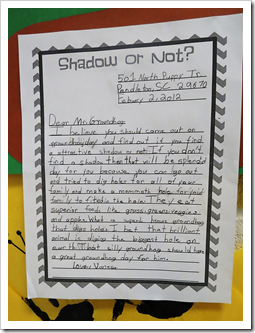 Shadow or Not?
501 North Puppy Tr.
Pendleton, SC 29670
Febuary 2, 2012
Dear Mr. Groundhog
I believe you should come out on
groundhog day and find out if you find
a attractive shadow or not. If you don't
find a shadow then that will be splendid
day for you because you can go out
and tried to dig holes for all of your
family and make a mammoth hole for your
family to fit in the hole. They eat
superior foods like grains, greens, veggies
and apples. What a superb house groundhog
that digs holes. I bet that brilliant
animal is diging the biggest hole on
earth. That silly groundhog should have
a great groundhog day for him.
Love,